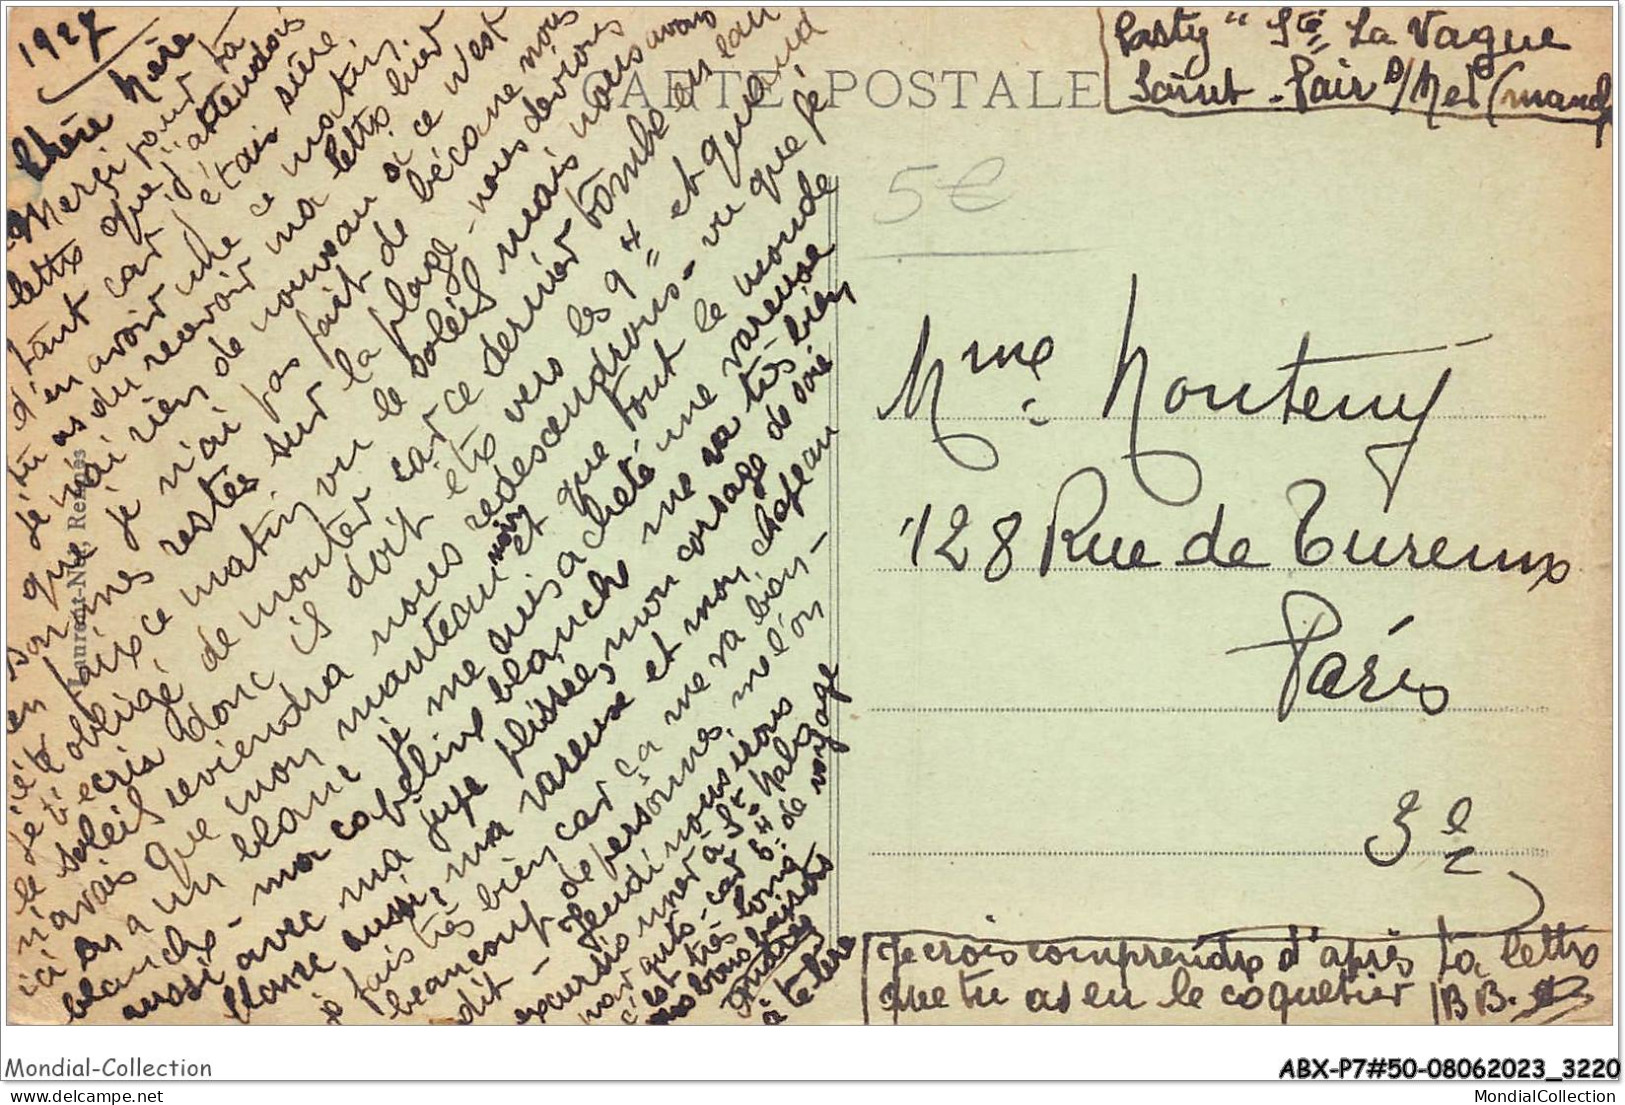 1927
Chère Mère
Merci pour ta
lettre que j'attendois
tant car j'étais sûre
d'en avoir une ce matin.
tu as du recevoir ma lettre hier
Je n'ai rien de nouveau si ce n'est
que je n'ai pas fait de bécane nous
sommes restés sur la plage - nous devions
en faire ce matin vu le soleil mais nous avons
été obligé de monter car ce dernier tombe en eau
Je t'écris donc il doit être vers les 9 h et quand
le soleil reviendra nous redescendrons - vu que je
n'avais que mon manteau noir et que tout le monde
ici en a un blanc je me suis acheté une vareuse
blanche - ma cobeline blanche me va très bien
aussi avec ma jupe plissée, mon corsage de soie
blanc aussi, ma vareuse et mon chapeau
je fais très bien car ça me va bien -
beaucoup de personnes me l'on
dit - Jeudi nous irons
excursionner à St Malo
par auto - car 6 h de voyage
c'est très long
mes bons baisers
Andrée
à te lire
CARTE POSTALE
Laurent-Nel, Rennes
Pasty " Ste La Vague
Saint-Pair s/Mer (manche)
5€
Mme Monteny
128 Rue de Turenne
Paris
3e
Je crois comprendre d'après ta lettre
que tu as eu le coquetier BB.
Mondial-Collection
ABX-P7#50-08062023_3220
delcampe.net
MondialCollection